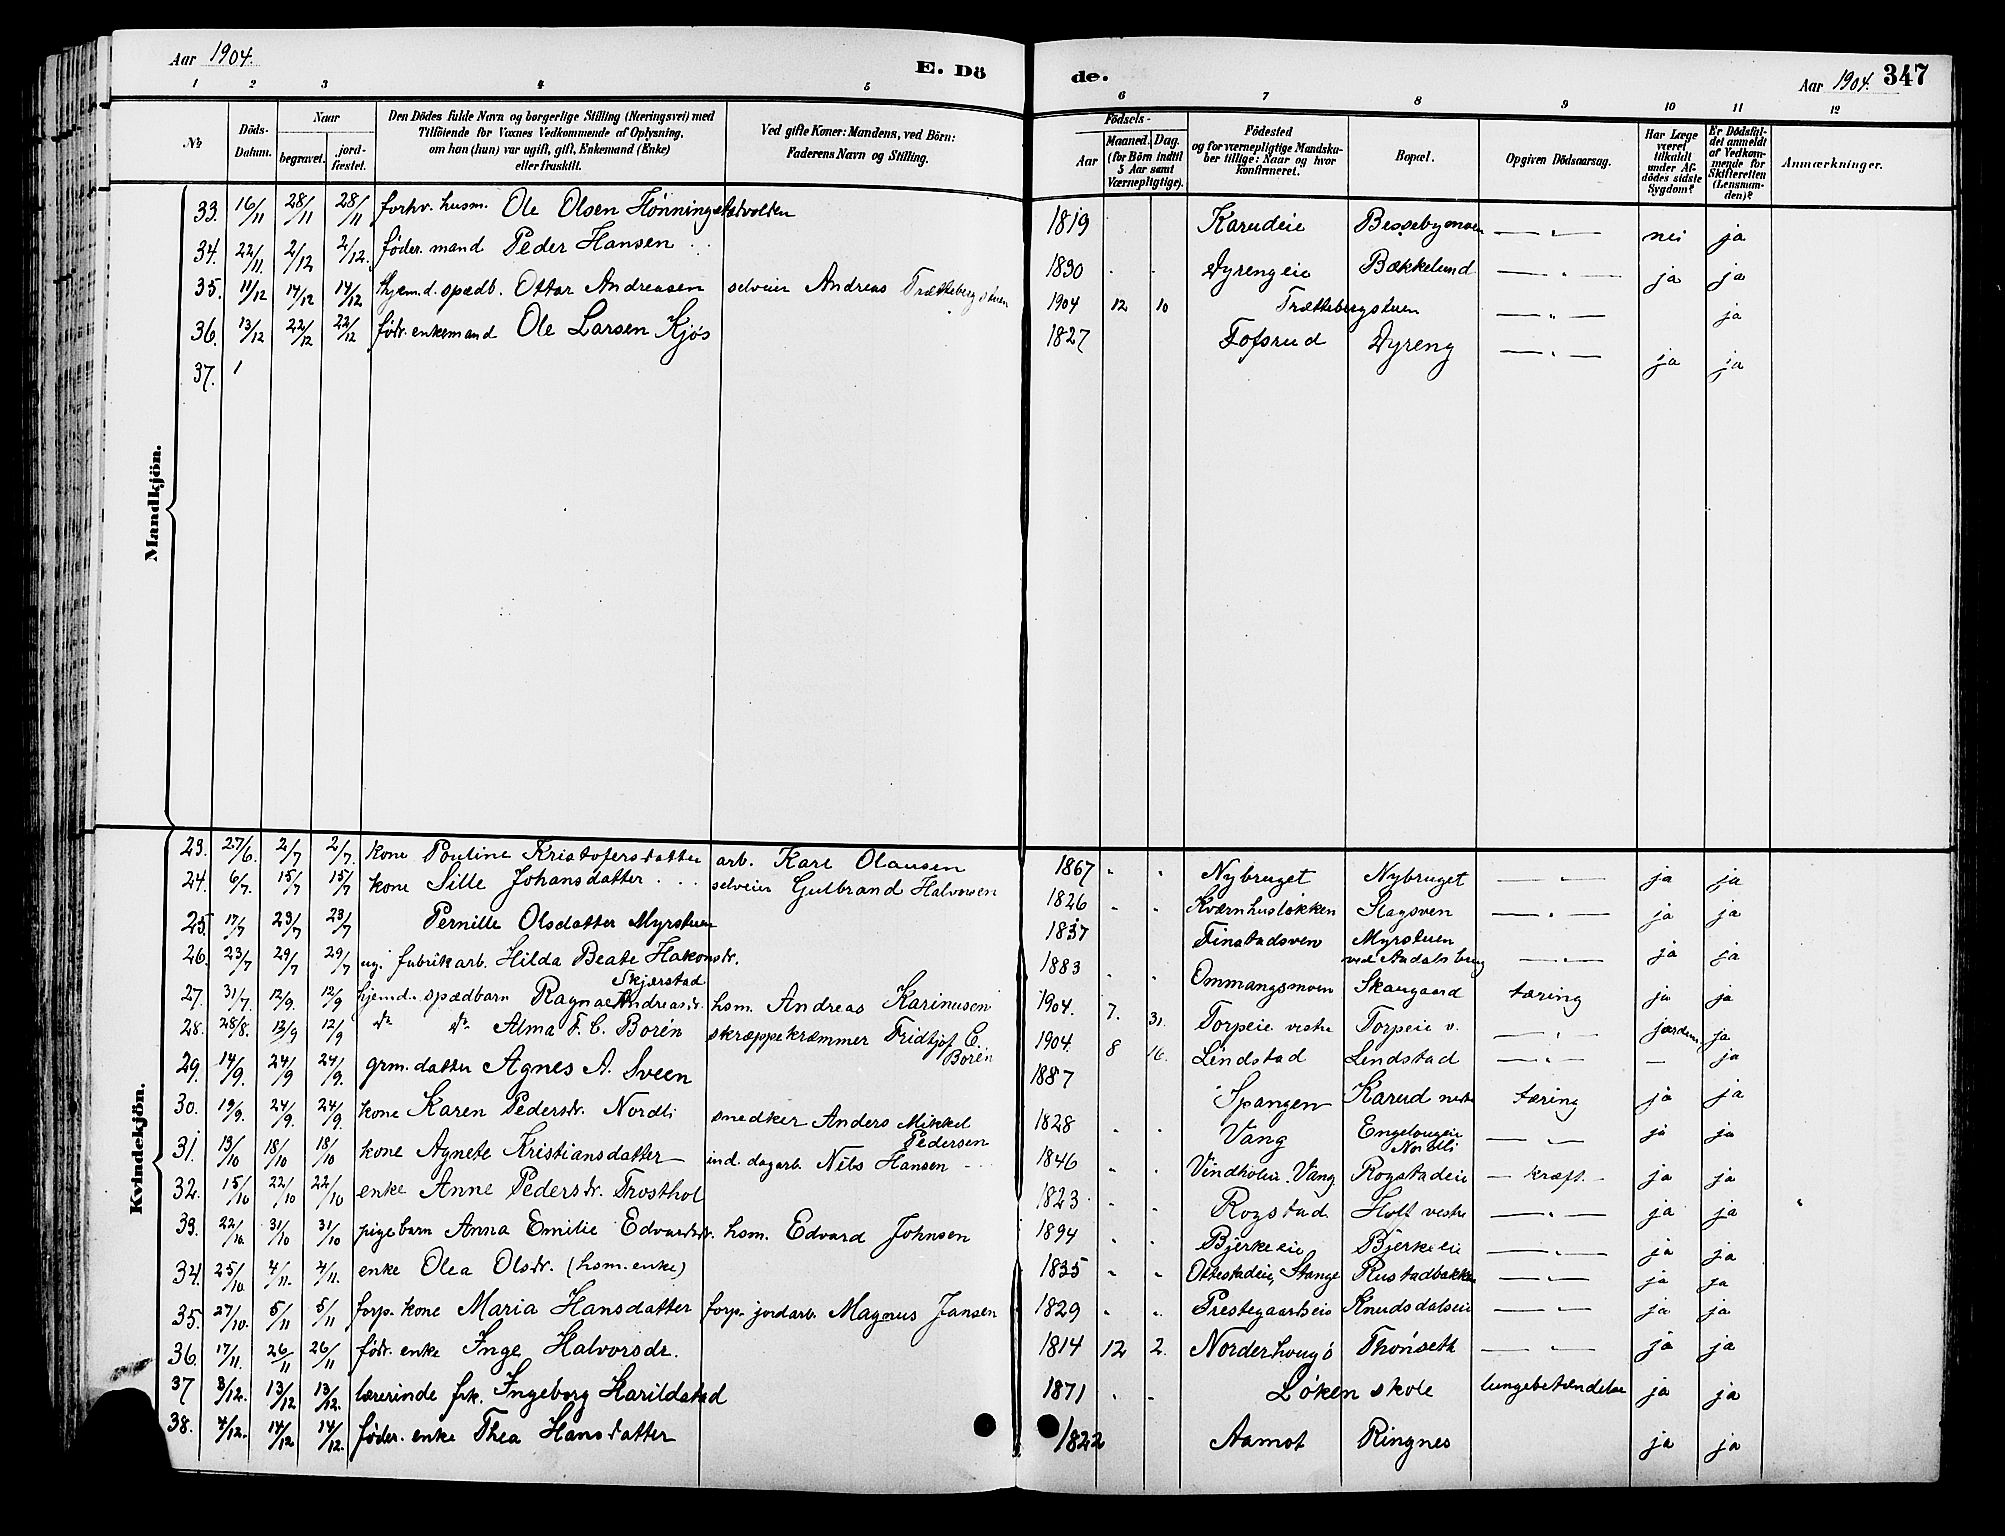 Aar 1904. E. Dö de. Aar 1904. 347
1 2 3 4 5 6 7 8 9 10 11 12
№ Döds-Datum. Naar begravet. jord-fæstet. Den Dödes fulde Navn og borgerlige Stilling (Næringsvei) med Tilföiende for Voxnes Vedkommende af Oplysning, om han (hun) var ugift, gift, Enkemand (Enke) eller fraskilt. Ved gifte Koner: Mandens, ved Börn: Faderens Navn og Stilling. Födsels- Aar Maaned. Dag. (for Börn indtil 5 Aar samt Værnepligtige). Födested og for værnepligtige Mandskaber tillige: Naar og hvor konfirmeret. Bopæl. Opgiven Dödsaarsag. Har Læge været tilkaldt under Afdödes sidste Sygdom? Er Dödsfaldet anmeldt af Vedkommende for Skifteretten (Lensmanden)? Anmærkninger.
Mandkjön.
33. 16/11 28/11 28/11 forhv. husm. Ole Olsen Hønningstadvolden 1819 Karudeie Bessebymoen — " — nei ja
34. 22/11. 2/12 2/12. føder. mand Peder Hansen 1830 Dyrengeie Bækkelund — " — ja ja
35. 11/12 14/12 14/12 hjem.d. spædb. Ottar Andreasen selveier Andreas Trættebergstuen 1904 12 10 Trættebergstuen — " — ja
36. 13/12 22/12 22/12 fødr. enkemand Ole Larsen Kjos 1827 Fofsrud Dyreng — " — ja ja
37.
Kvindekjön.
23. 27/6. 2/7 2/7. kone Pouline Kristofersdatter arb. Karl Olausen 1867 " " Nybruget Nybruget — " — ja ja
24. 6/7. 15/7 15/7 kone Sille Johansdatter selveier Gulbrand Halvorsen 1826 " " Kværnhusløkken Slagsven — " — ja ja
25. 17/7 23/7 23/7 Pernille Olsdatter Myrstuen 1837 Finstadsven Myrstuen ved Aadals brug — " — ja ja
26. 23/7 29/7 29/7 ug. fabrikarb. Hilda Beate Hakonsdr. Skjærstad 1883 " " Ommangsmoen Skaugaard tæring ja ja
27. 31/7. 12/9. 12/9 hjemd. spædbarn Ragna Andreasdr. hsm. Andreas Karinusen 1904. 7. 31. Torpeie vestre Torpeie v. — " — jordm. ja
28. 28/8. 13/9 12/9 do do Alma F. C. Borén skræppekræmmer Fridtjof C. Borén 1904. 8 16. Lindstad Lindstad — " — — ja
29. 14/9. 24/9 24/9. grm. datter Agnes A. Sveen 1887 Spangen Karud nedre tæring ja ja
30. 19/9. 24/9. 24/9. kone Karen Pedersdr. Nordli snedker Anders Mikkel Pedersen 1828 " " Vang Engelaugeie Nordli — " — ja ja
31. 13/10 18/10 18/10 kone Agnete Kristiansdatter ind. dagarb. Nils Hansen 1846 " " Vindholen Vang Rogstadeie — kræft. — ja ja
32. 15/10 22/10 22/10 enke Anne Pedersdr. Trosthol 1823 " " Rogstad Holt vestre — " — ja ja
33. 22/10. 31/10 31/10 pigebarn Anna Emilie Edvardsdr. hsm. Edvard Johnsen 1894 " " Bjerkeeie Bjerkeeie — " — ja ja
34. 25/10 4/11. 4/11. enke Olea Olsdr. (hsm. enke) 1835 " " Ottestadeie, Stange Rustadbakken — " — ja ja
35. 27/10. 5/11 5/11 forp. kone Maria Hansdatter forp. jordarb. Magnus Jansen 1829 " " Prestegaardseie Knudsdalseie — " — ja ja
36. 17/11. 26/11 26/11 fødr. enke Inge Halvorsdr. 1814 12 2. Norderhougø Thønseth — " — ja ja
37 3/12. 13/12 13/12. lærerinde frk. Ingeborg Harildstad 1871 " " Løken skole lungebetændelse ja ja
38. 4/12. 14/12 14/12. føder. enke Thea Hansdatter 1822 Aamot Ringnes ja ja